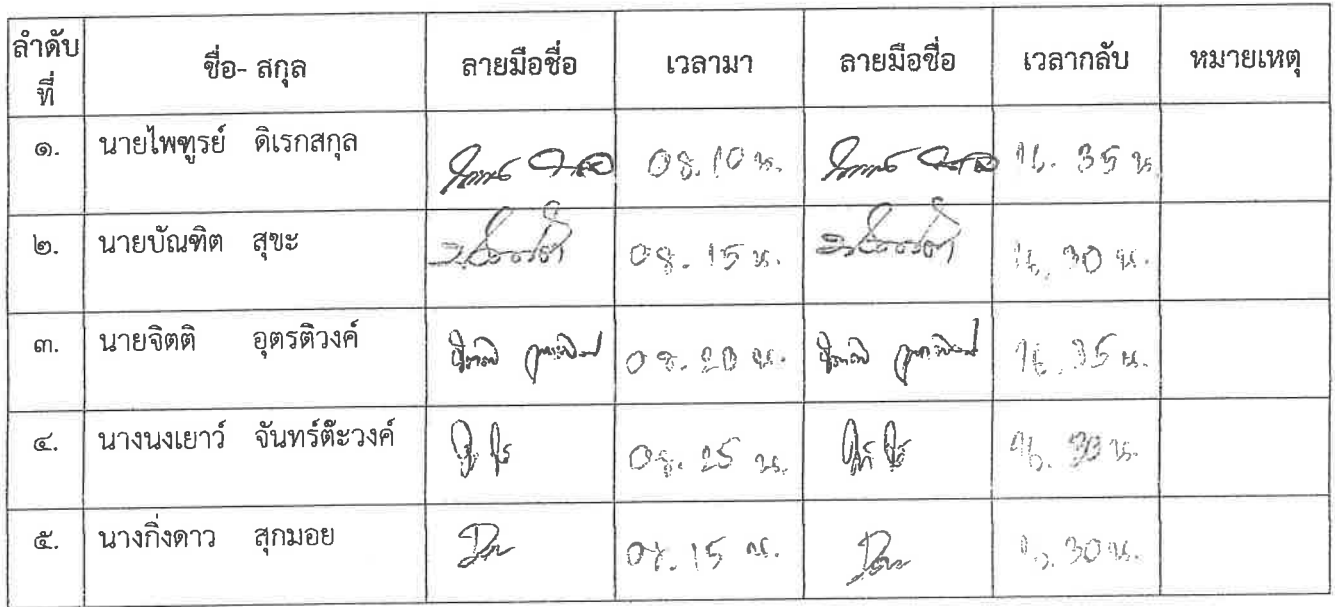 ลำดับ
ที่
ชื่อ- สกุล ลายมือชื่อ เวลามา ลายมือชื่อ เวลากลับ หมายเหตุ
๑. นายไพฑูรย์ ดิเรกสกุล 08.10 น. 16.35 น.
๒. นายบัณฑิต สุขะ 08.15 น. 16.30 น.
๓. นายจิตติ อุตรติวงค์ 08.20 น. 16.35 น.
๔. นางนงเยาว์ จันทร์ต๊ะวงค์ 08.25 น. 16.30 น.
๕. นางกิ่งดาว สุกมอย 08.15 น. 16.30 น.